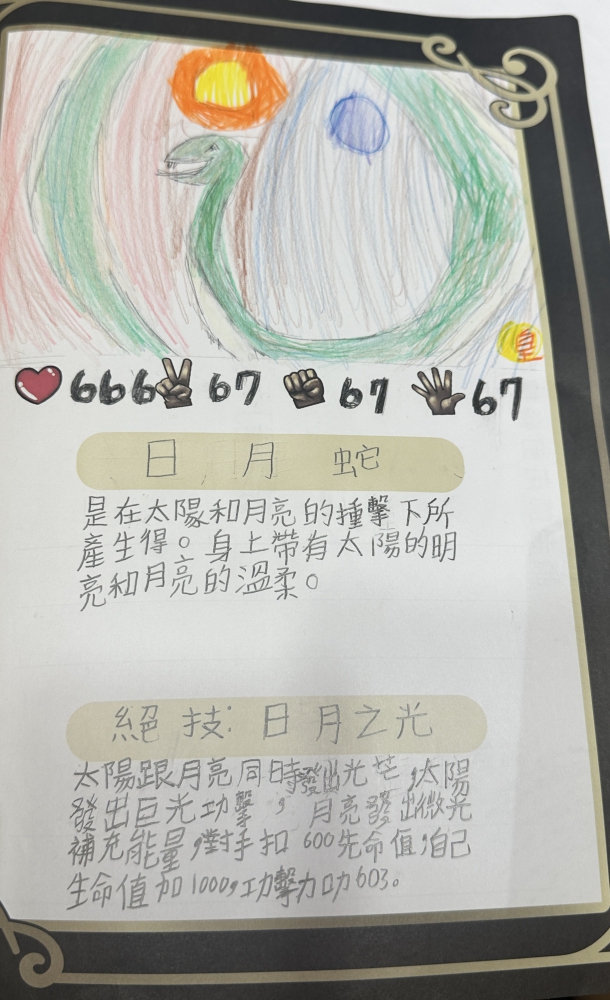 是
666 67 67 67
日 月 蛇
是在太陽和月亮的撞擊下所
產生得。身上帶有太陽的明
亮和月亮的溫柔。
絕 技: 日月之光
太陽跟月亮同時發出光芒,太陽
發出巨光功擊, 月亮發出微光
補充能量,對手扣 600先命值,自己
生命值加1000,功擊力加603。